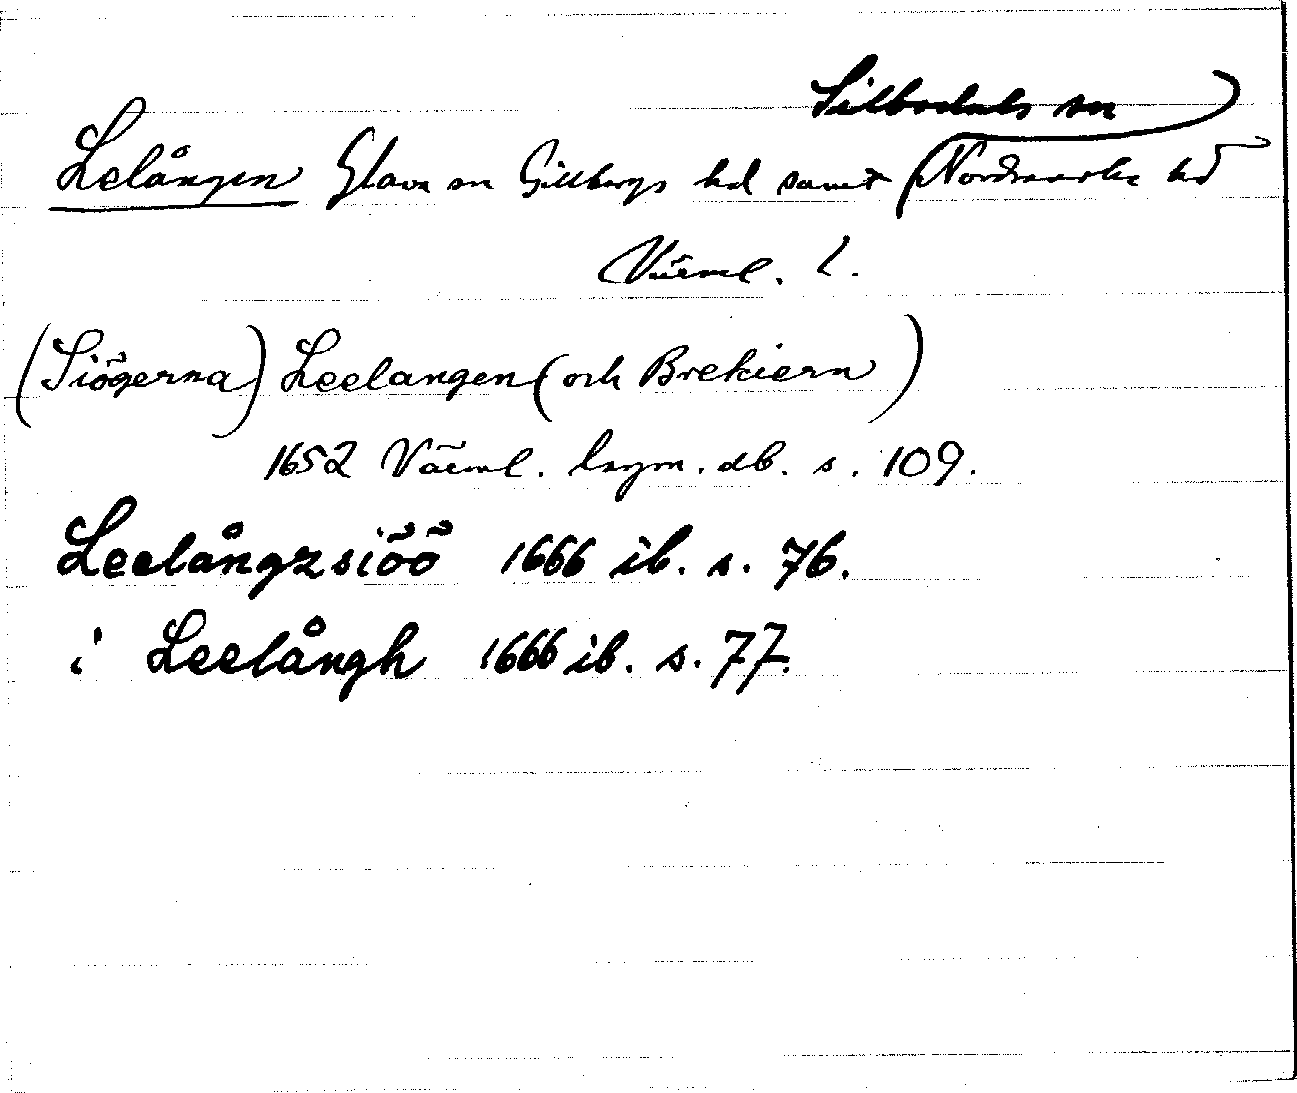 Silbodals sn
Lelången Glava sn Gillbergs hd samt Nordmarks hd
Värml. l.
(Siögerna) Leelangen (och Brekiern)
1652 Värml. lagm. db. s. 109.
Leelångzsiöö 1666 ib. s. 76.
i Leelångh 1666 ib. s. 77.